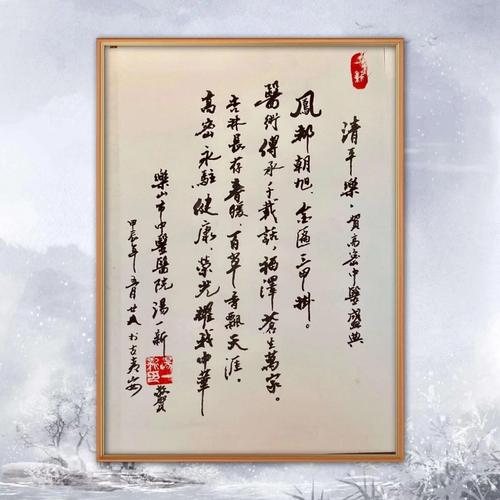 清平樂·賀高密中醫盛典
鳳都朝旭，金匾三甲掛。
醫術傳承千載話，福澤蒼生萬家。
杏林長存春暖，百草香飄天涯。
高密永駐健康，榮光耀我中華
樂山市中醫醫院 湯一新
甲辰年 五月廿